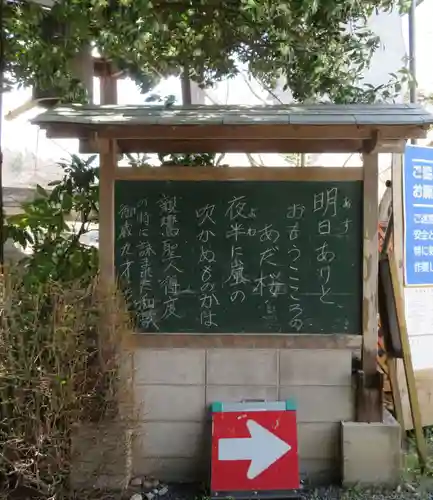 明日ありと
あす
おもうこころの
あだ桜
夜半に嵐の
よわ
吹かぬものかは
親鸞聖人得度
の時に詠まれた和歌
御歳九才
ご協
お願
ご迷
安全
作業し